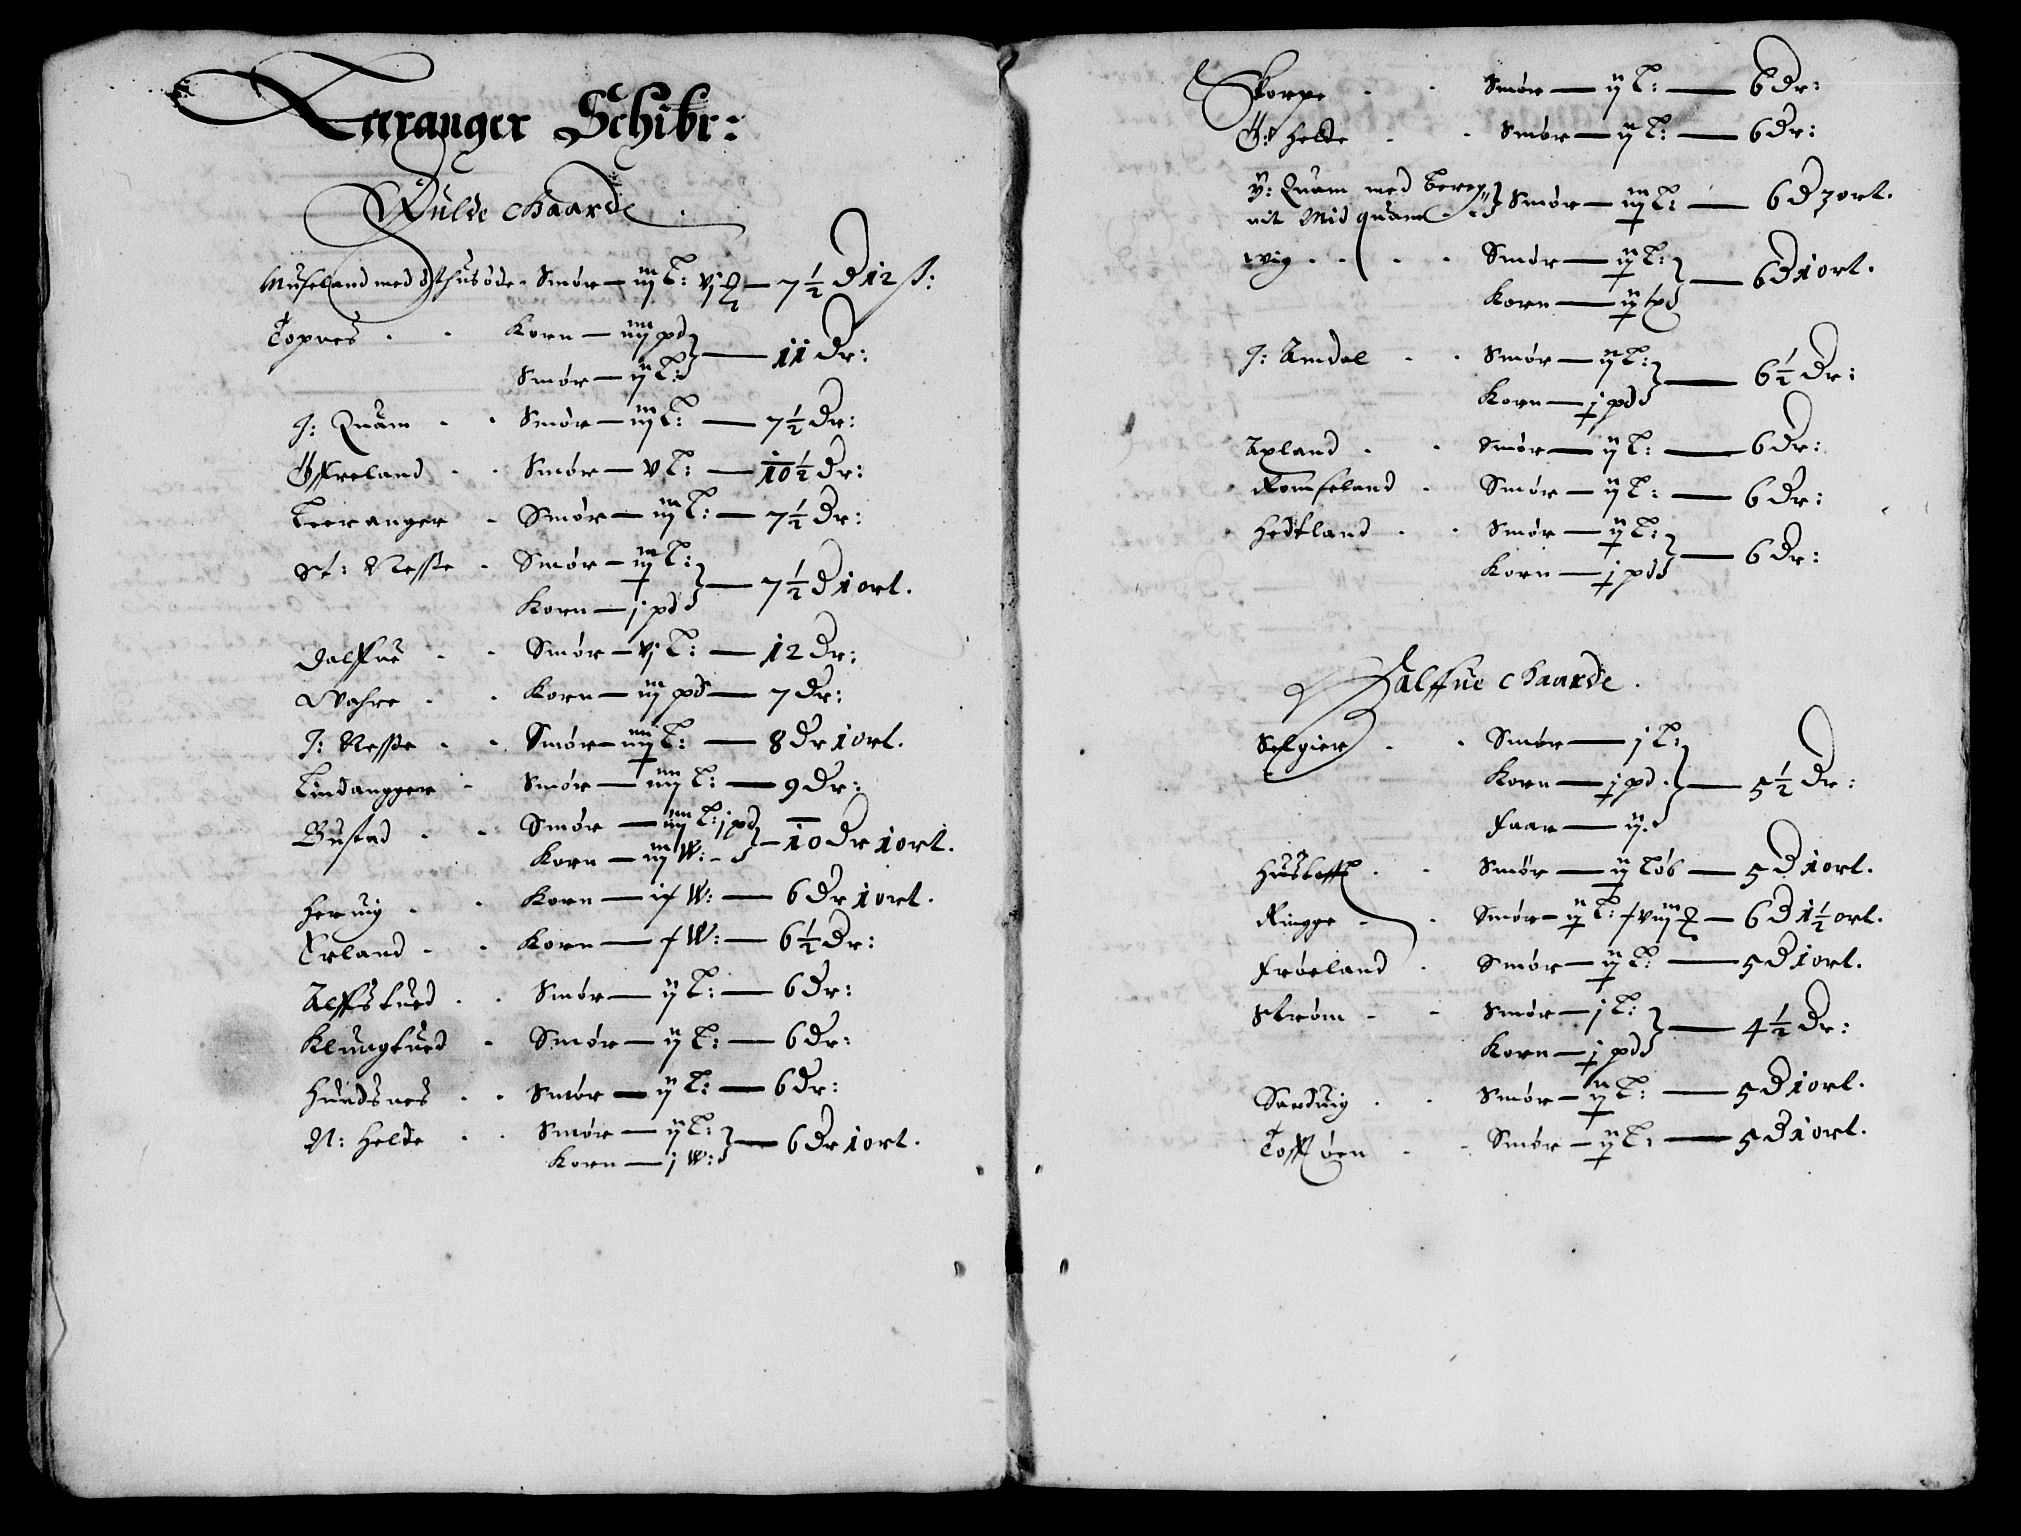 Teranger Schibr:
Fulde Gaarde
Museland med Østhusøde - Smør — iij L: vj — 7½ D 12 ß:
Topnes - - Korn — iiij pd
Smør — ij L: — 11 Dr:
J: Quam - - Smør — iij L: — 7½ Dr:
Öffreland - - Smør — v L: — 10½ Dr:
Teeranger - Smør — iij L: — 7½ Dr:
St: Nesse - Smør — iij L:
Korn — j pd — 7½ D 1 ort.
Dalffue - - Smør — vj L: — 12 Dr:
Wahre - - Korn — iij pd — 7 Dr:
J: Nesse - - Smør — iiij L: — 8 Dr 1 ort.
Lindangger - Smør — iiij L: — 9 Dr:
Bustad - - Smør — iiij L: j pd
Korn — iij W: — 10 Dr 1 ort.
Heruig - - Korn — W: — 6 Dr 1 ort.
Erland - - Korn — W: — 6½ Dr:
Alffstued - - Smør — ij L: — 6 Dr:
Klungtued - Smør — ij L: — 6 Dr:
Hundsnes - - Smør — ij L: — 6 Dr:
N: Helde - - Smør — ij L:
Korn — j W: — 6 Dr 1 ort.
Skorpe - - Smør — ij L: — 6 Dr:
Ö: Helde - - Smør — ij L: — 6 Dr:
Y: Quam med
Mid quam - Smør — iij L: — 6 D 3 ort.
Wiig - - - Smør — ij L:
Korn — ij pd — 6 D 1 ort.
J: Amdal - - Smør — ij L:
Korn — j pd — 6½ Dr:
Axland - - Smør — ij L: — 6 Dr:
Romseland - Smør — ij L: — 6 Dr:
Hedtland - - Smør — ij L:
Korn — j pd — 6 Dr:
Halffue Gaarde.
Selgier - - Smør — j L:
Korn — j pd
Faar — ij — 5½ Dr:
Hustofft - - Smør — ij Løb — 5 D 1 ort.
Ringge - - Smør — ij L: viij — 6 D 1½ ort.
Frøeland - Smør — ij L: — 5 D 1 ort.
Strøm - - Smør — j L:
Korn — j pd — 4½ Dr:
Sanduig - - Smør — ij L: — 5 D 1 ort.
Tofftøen - - Smør — ij L: — 5 D 1 ort.